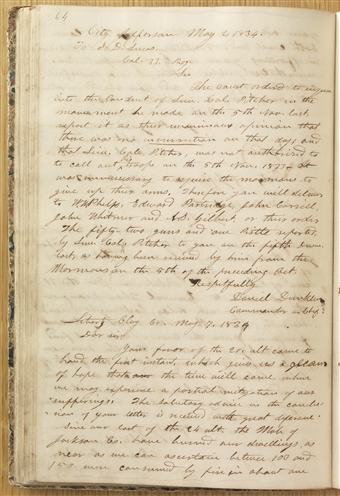 64
City Jefferson May 2, 1834.
To S. D. Lucas.
Col. 33. Reg.
Sir
The court ordered to inquire
into the Conduct of Lieu. Col. Pitcher in the
movement he made on the 5th Nov. last
report it as their unanimous opinion that
there was no insurrection on that day, and
that Lieu. Colo. Pitcher, was not authorized to
to call out troops on the 5th Nov. 1833. It
was unnecessary to require the mormons to
give up their arms. Therefore you will deliver
to W. W. Phelps, Edward Partridge, John Corrill,
John Whitmer and A. S. Gilbert, or their order
The fifty two guns and one Pistol reported
by Lieu. Col. Pitcher to you on the fifth Decem.
last, as having been received by him from the
Mormons on the 5th of the preceding
Respectfully
Daniel Dunklin
Commander in Chief
Liberty Clay Co. May, 7, 1834
Dear sir
Your favor of the 20 ult came to
hand the first instant, which gives us a gleam
of hope that the time will come when
we may experience a partial mitigation of our
sufferings. The salutary advice in the conclu-
sion of your letter is received with great deference.
Since our last of the 24 ult. the Mob of
Jackson Co. have burned our dwellings, as
near as we can ascertain between 100 and
150 were consumed by fire in about one